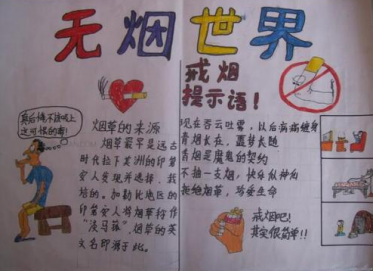 无烟世界
戒烟
提示语！
真后悔不该吸上
这可恨的毒！
烟草的来源
烟草最早是远古
时代拉丁美洲的印第
安人发现并选择，栽
培的。加勒比地区的
印第安人将烟草称作
“淡马菰”，烟草的英
文名即源于此。
现在吞云吐雾，以后病痛缠身
青烟长在，噩梦长随
香烟是魔鬼的契约
不抽一支烟，快乐似神仙
拒绝烟草，珍爱生命
戒烟吧！
其实很简单！！